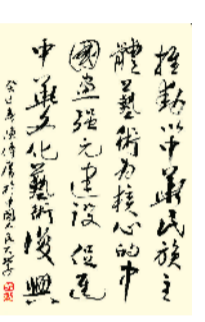 推動以中華民族主
體藝術為核心的中
國 元建設促進
中華文化藝術復興
癸巳 於中國人民大學